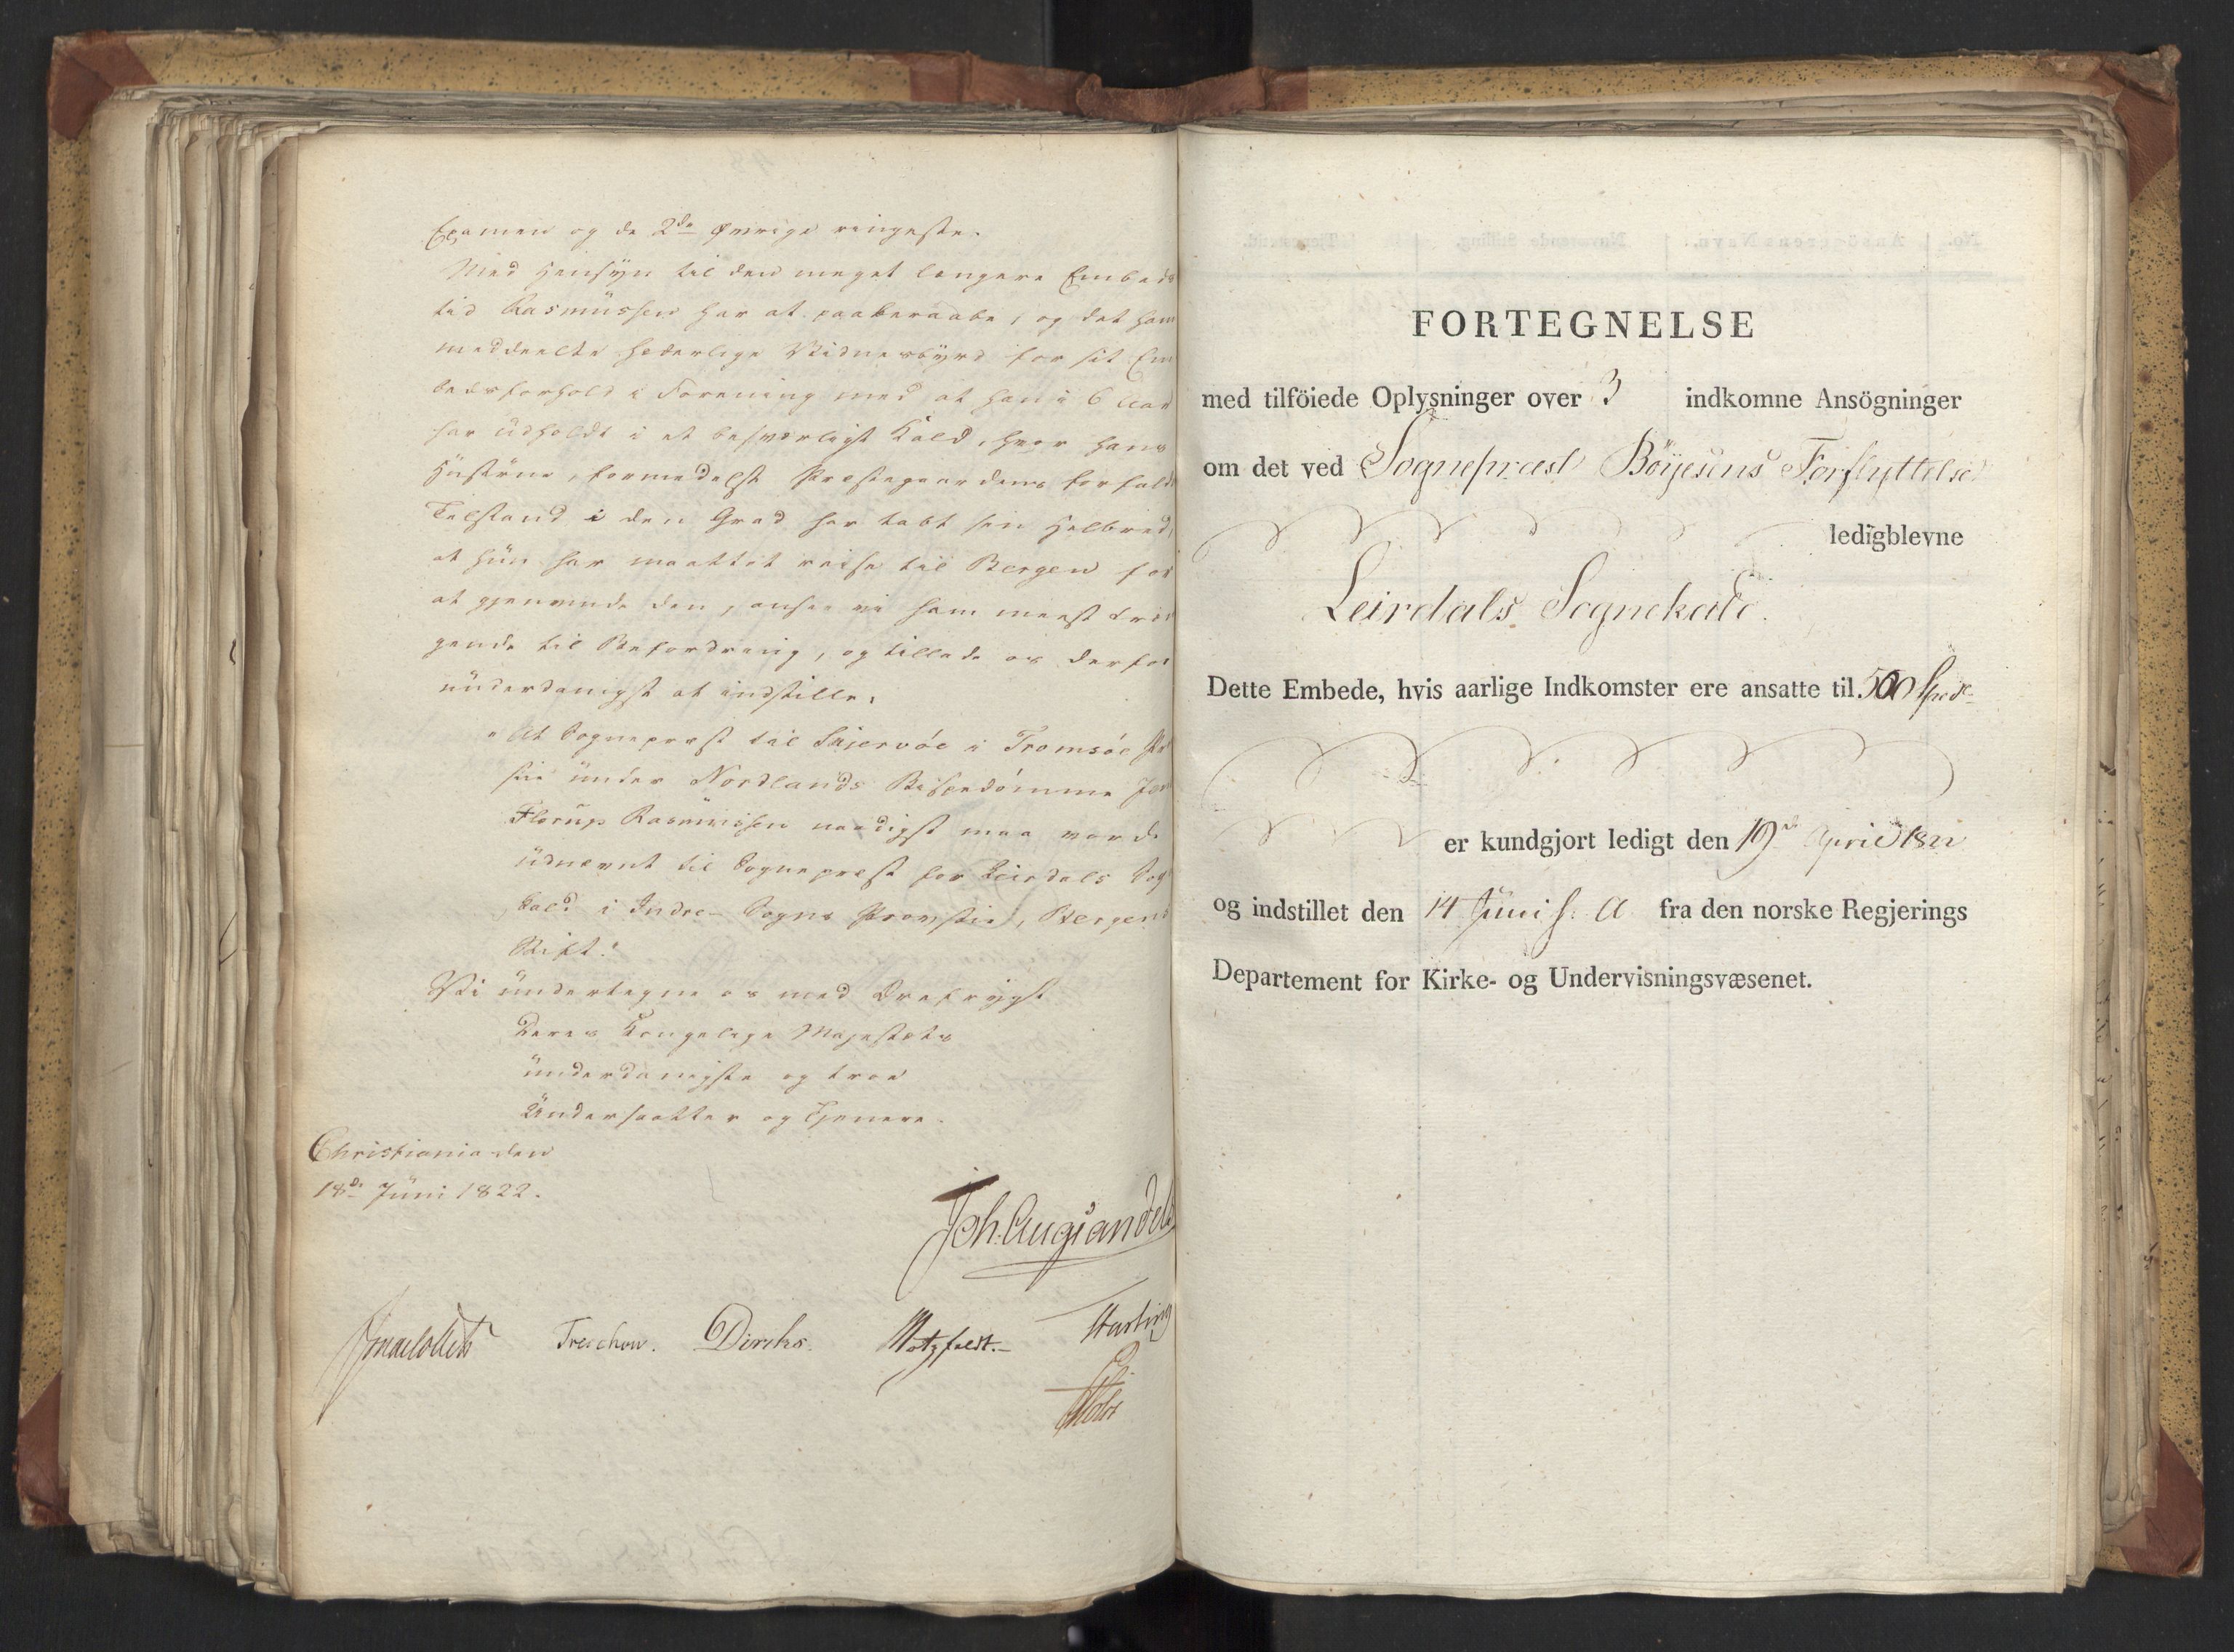 Examen og de 2de øvrige ringeste.
Med Hensÿn til den meget længere Embeds
tid Rasmüssen har at paaberaabe, og det ham
meddeelte hæderlige Vidnesbyrd for sit Em
bedsforhold i Forening med at han i 6 Aar
har üdholdt i et besværligt Kald, hvor hans
Hüstrüe, formedelst Præstegaardens forfaldne
Tilstand i den Grad har tabt sin Helbred,
at hün har maattet reise til Bergen for
at gjenvinde den, ansee vi ham meest træn
gende til Befordring, og tillade os derfor
ünderdanigst at indstille:
"At Sognepræst til Skjervöe i Tromsöe Pro
stie ünder Nordlands Bispedömme Jens
Flørup Rasmüssen naadigst maa vorde
üdnævnt til Sognepræst for Leirdals Sog
kald i Indre- Sogns Provstie, Bergens
Stift."
Vi ündertegne os med Ærefrygt
Deres Kongelige Majestæts
ünderdanigste og troe
Ündersaatter og Tjenere.
Christiania den
18de Jüni 1822.
Joh: Aug: Sandels
Treschow. Diriks. Motzfeldt.
FORTEGNELSE
med tilföiede Oplysninger over 3 indkomne Ansögninger
om det ved Sognepræst Böÿesens Forflyttelse
ledigblevne
Leirdals Sognekald.
Dette Embede, hvis aarlige Indkomster ere ansatte til 500 Spd
er kundgjort ledigt den 19de April 1822
og indstillet den 14 Jüni s. A fra den norske Regjerings
Departement for Kirke- og Undervisningsvæsenet.